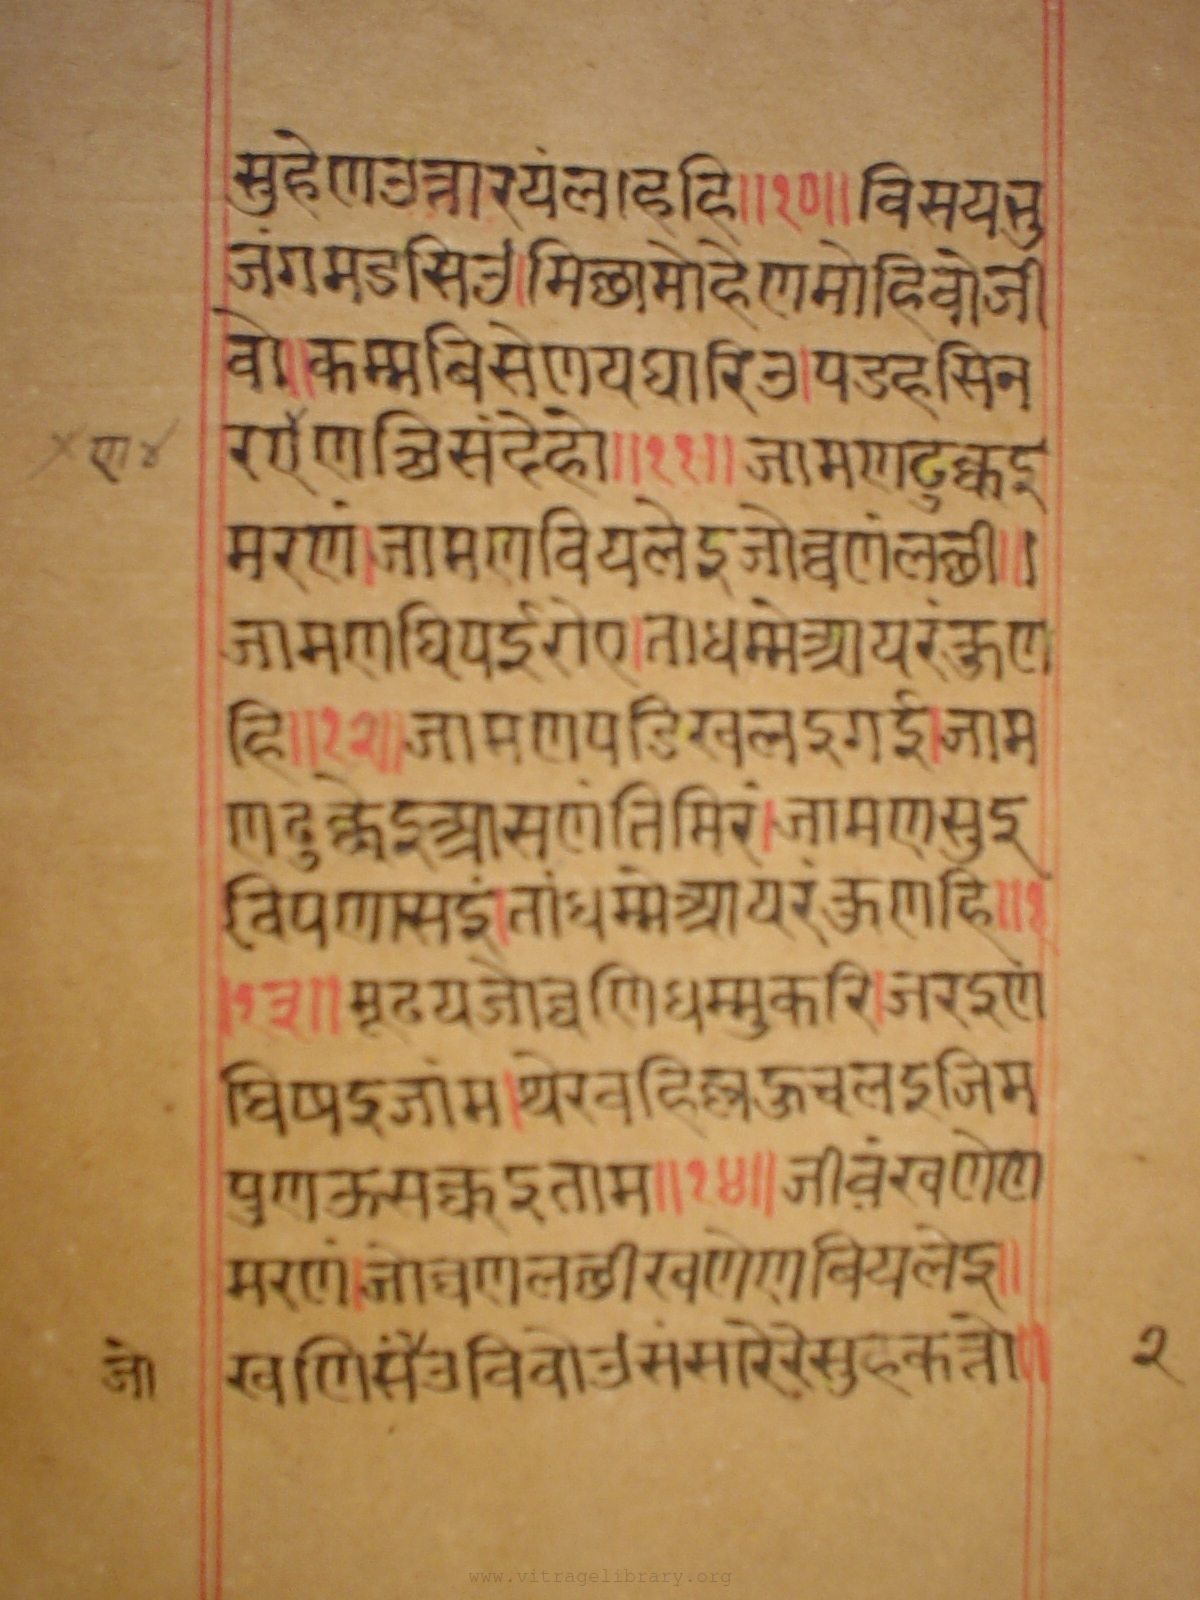 सुहेणउत्तारयंलाहहि॥१०॥विसयभु
जंगमडसिउं।मिछामोहेणमोहिवोजी
वो॥कम्मविसेणयघारिउ।पडहसिन
रएणत्थिसंदेहो॥११॥जामणढुक्कइ
× ए ४
मरणं।जामणवियलेइजोव्वणंलछी॥।
जामणघिपईरोए।ताधम्मेआयरंकुण
हि॥१२॥जामणपडिखलइगई।जाम
णढुक्केइआसणंतिमिरं।जामणसुइ
विपणासइं।तांधम्मेआयरंकुणहि॥१
।१३॥मूढयजोव्वणिधम्मुकरि।जरइण
घिप्पइजांम।थेरवहिल्लऊचलइजिम
पुणऊसक्कइताम॥१४॥जीवंखणेण
मरणं।जोव्वणलछीखणेणवियलेइ॥
खणिसंउविवोउंसंसारेरेसुहकत्तो॥
जो
२
www.vitragelibrary.org